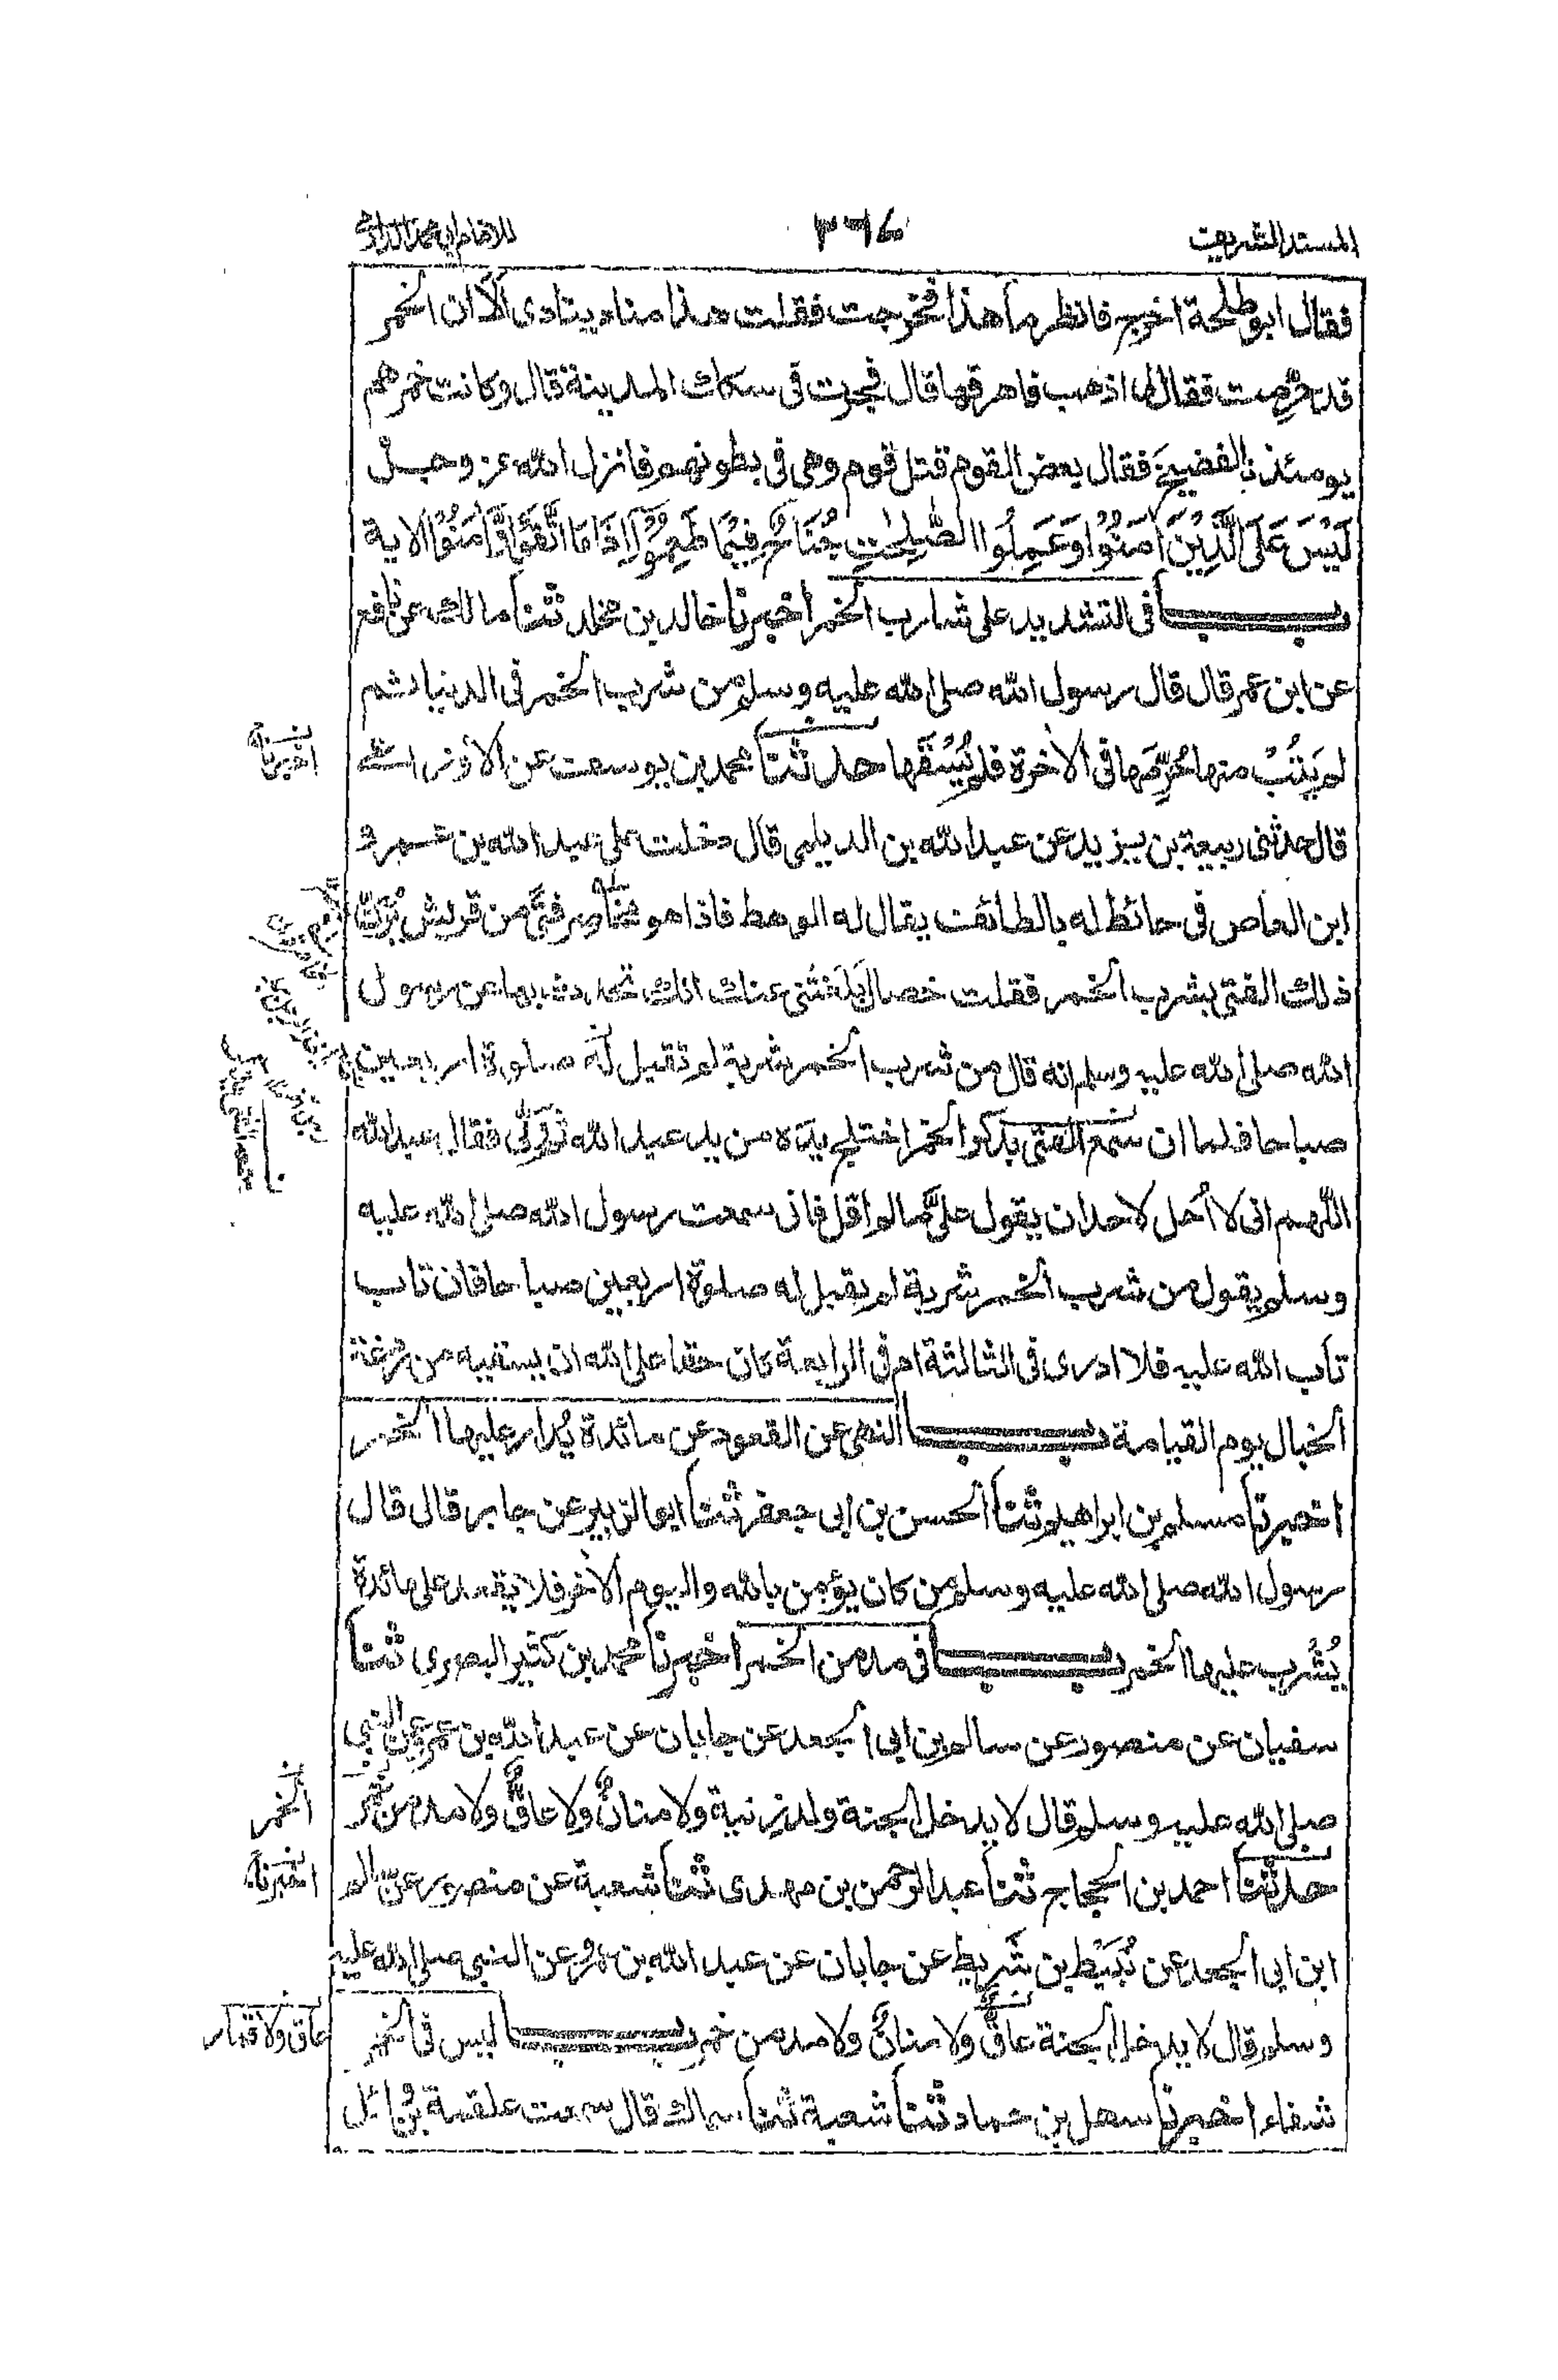 المسند الشريف
٢٦٧
للامام ابی محمد الدارمی
فقال ابو طلحة اخرج فانظر ما هذا فخرجت فقلت هذا مناد ينادی الا ان الخمر
قد حُرِّمت فقال لی اذهب فاهرقها قال فجرت فی سكك المدينة قال وكانت خمرهم
يومئذ الفضيخ فقال بعض القوم قتل قوم وهی فی بطونهم فانزل الله عز وجل
لَيْسَ عَلَى الَّذِيْنَ اٰمَنُوْا وَعَمِلُوا الصّٰلِحٰتِ جُنَاحٌ فِيْمَا طَعِمُوْا اِذَا مَا اتَّقَوْا وَّاٰمَنُوْا الاية
باب فی التشديد علی شارب الخمر اخبرنا خالد بن مخلد ثنا مالك عن نافع
عن ابن عمر قال قال رسول الله صلی الله عليه وسلم من شرب الخمر فی الدنيا ثم
لم يَتُبْ منها حُرِّمَها فی الاٰخرة فلم يُسْقَها حدثنا محمد بن يوسف عن الاوزاعی
اخبرنا
قال حدثنی ربيعة بن يزيد عن عبد الله بن الديلمی قال دخلت علی عبد الله بن عمرو
ابن العاص فی حائط له بالطائف يقال له الوهط فاذا هو مخاصر فتًی من قريش يُزَنُّ
ذلك الفتی بشرب الخمر فقلت خصال بَلَغَتْنی عنك انك تحدث بها عن رسول
الله صلی الله عليه وسلم انه قال من شرب الخمر شربة لم تقبل له صلوة اربعين
صباحا فلما ان سمع الفتی بذكر الخمر اختلج يده من يد عبد الله ثم وَلّٰی فقال عبد الله
اللّٰهم انی لا اُحل لاحد ان يقول علیَّ ما لم اقل فانی سمعت رسول الله صلی الله عليه
وسلم يقول من شرب الخمر شربة لم يقبل له صلوة اربعين صباحا فان تاب
تاب الله عليه فلا ادری فی الثالثة ام فی الرابعة كان حقا علی الله ان يسقيه من ردغة
الخبال يوم القيامة باب النهی عن القعود عن مائدة يُدار عليها الخمر
اخبرنا مسلم بن ابراهيم ثنا الحسن بن ابی جعفر ثنا ابو الزبير عن جابر قال قال
رسول الله صلی الله عليه وسلم من كان يؤمن بالله واليوم الاٰخر فلا يقعد علی مائدة
يُشْرب عليها الخمر باب فی مدمن الخمر اخبرنا محمد بن كثير البصری ثنا
سفيان عن منصور عن سالم بن ابی الجعد عن جابان عن عبد الله بن عمرو عن النبی
صلی الله عليه وسلم قال لا يدخل الجنة ولد زنية ولا منانٌ ولا عاقٌّ ولا مدمن خمر
الخمر
حدثنا احمد بن الحجاج ثنا عبد الرحمن بن مهدی ثنا شعبة عن منصور عن سالم
اخبرنا
ابن ابی الجعد عن نُبَيْط بن شَرِيط عن جابان عن عبد الله بن عمرو عن النبی صلی الله عليه
وسلم قال لا يدخل الجنة عاقٌّ ولا منانٌ ولا مدمن خمر باب ليس فی الخمر
عاق ولا قمار
شفاء اخبرنا سهل بن حماد ثنا شعبة ثنا سماك قال سمعت علقمة بن وائل